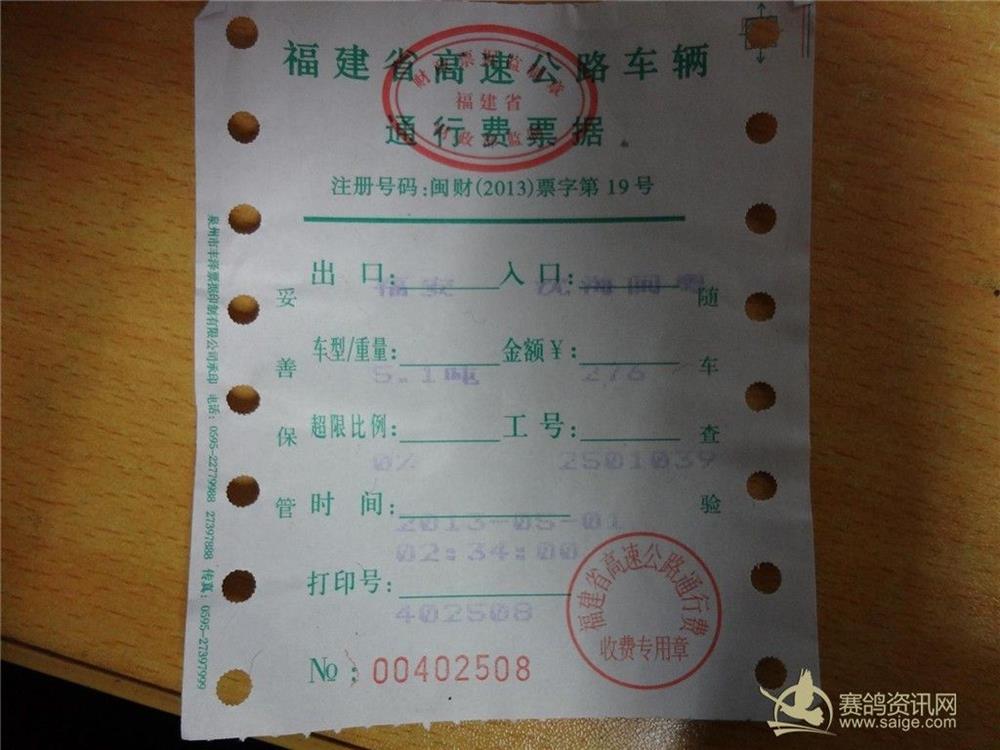 福建省高速公路车辆
通行费票据
福建省
注册号码:闽财(2013)票字第19号
出口: 福安 入口:
车型/重量: 5.1吨 金额￥: 276
超限比例: 0% 工号: 2501039
时间: 2013-05-01
02:34:00
打印号: 402508
No: 00402508
妥善保管
随车查验
泉州市丰泽票据印制有限公司承印 电话: 0595-22779988 27397888 传真: 0595-27397999
福建省高速公路通行费
收费专用章
赛鸽资讯网
www.saige.com